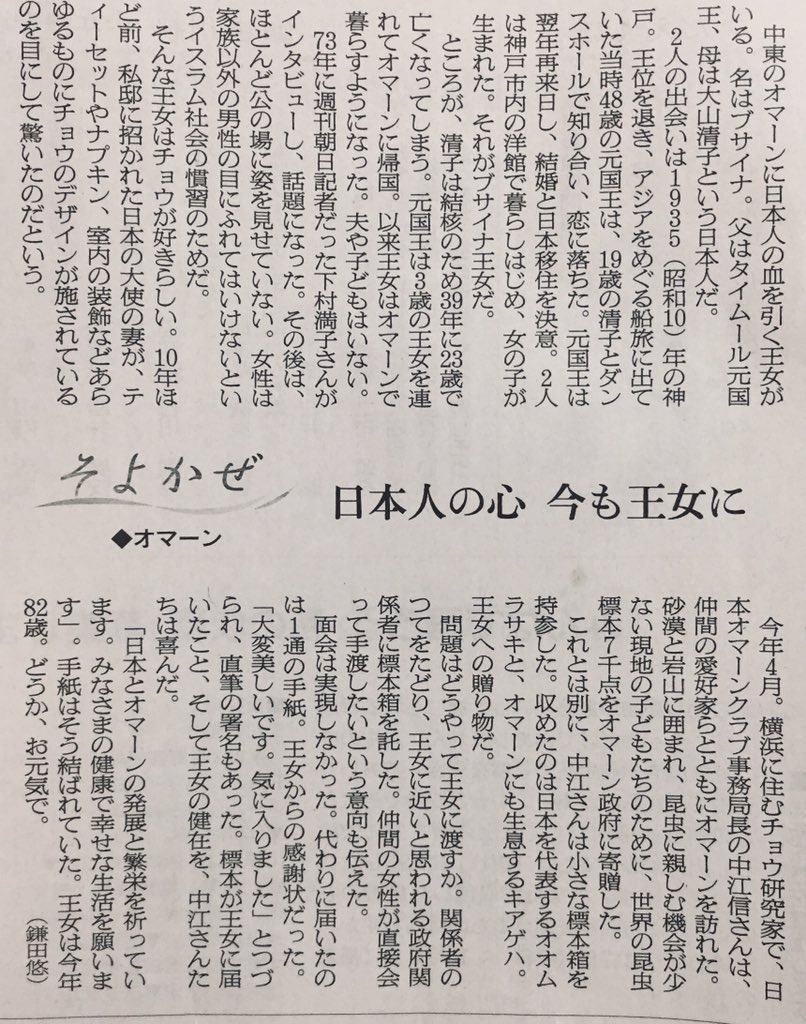 日本人の心 今も王女に
そよかぜ
◆オマーン
中東のオマーンに日本人の血を引く王女が
いる。名はブサイナ。父はタイムール元国
王、母は大山清子という日本人だ。
2人の出会いは1935（昭和10）年の神
戸。王位を退き、アジアをめぐる船旅に出て
いた当時48歳の元国王は、19歳の清子とダン
スホールで知り合い、恋に落ちた。元国王は
翌年再来日し、結婚と日本移住を決意。2人
は神戸市内の洋館で暮らしはじめ、女の子が
生まれた。それがブサイナ王女だ。
ところが、清子は結核のため39年に23歳で
亡くなってしまう。元国王は3歳の王女を連
れてオマーンに帰国。以来王女はオマーンで
暮らすようになった。夫や子どもはいない。
73年に週刊朝日記者だった下村満子さんが
インタビューし、話題になった。その後は、
ほとんど公の場に姿を見せていない。女性は
家族以外の男性の目にふれてはいけないとい
うイスラム社会の慣習のためだ。
そんな王女はチョウが好きらしい。10年ほ
ど前、私邸に招かれた日本の大使の妻が、テ
ィーセットやナプキン、室内の装飾などあら
ゆるものにチョウのデザインが施されている
のを目にして驚いたのだという。
今年4月。横浜に住むチョウ研究家で、日
本オマーンクラブ事務局長の中江信さんは、
仲間の愛好家らとともにオマーンを訪れた。
砂漠と岩山に囲まれ、昆虫に親しむ機会が少
ない現地の子どもたちのために、世界の昆虫
標本7千点をオマーン政府に寄贈した。
これとは別に、中江さんは小さな標本箱を
持参した。収めたのは日本を代表するオオム
ラサキと、オマーンにも生息するキアゲハ。
王女への贈り物だ。
問題はどうやって王女に渡すか。関係者の
つてをたどり、王女に近いと思われる政府関
係者に標本箱を託した。仲間の女性が直接会
って手渡したいという意向も伝えた。
面会は実現しなかった。代わりに届いたの
は1通の手紙。王女からの感謝状だった。
「大変美しいです。気に入りました」とつづ
られ、直筆の署名もあった。標本が王女に届
いたこと、そして王女の健在を、中江さんた
ちは喜んだ。
「日本とオマーンの発展と繁栄を祈ってい
ます。みなさまの健康で幸せな生活を願いま
す」。手紙はそう結ばれていた。王女は今年
82歳。どうか、お元気で。
（鎌田悠）